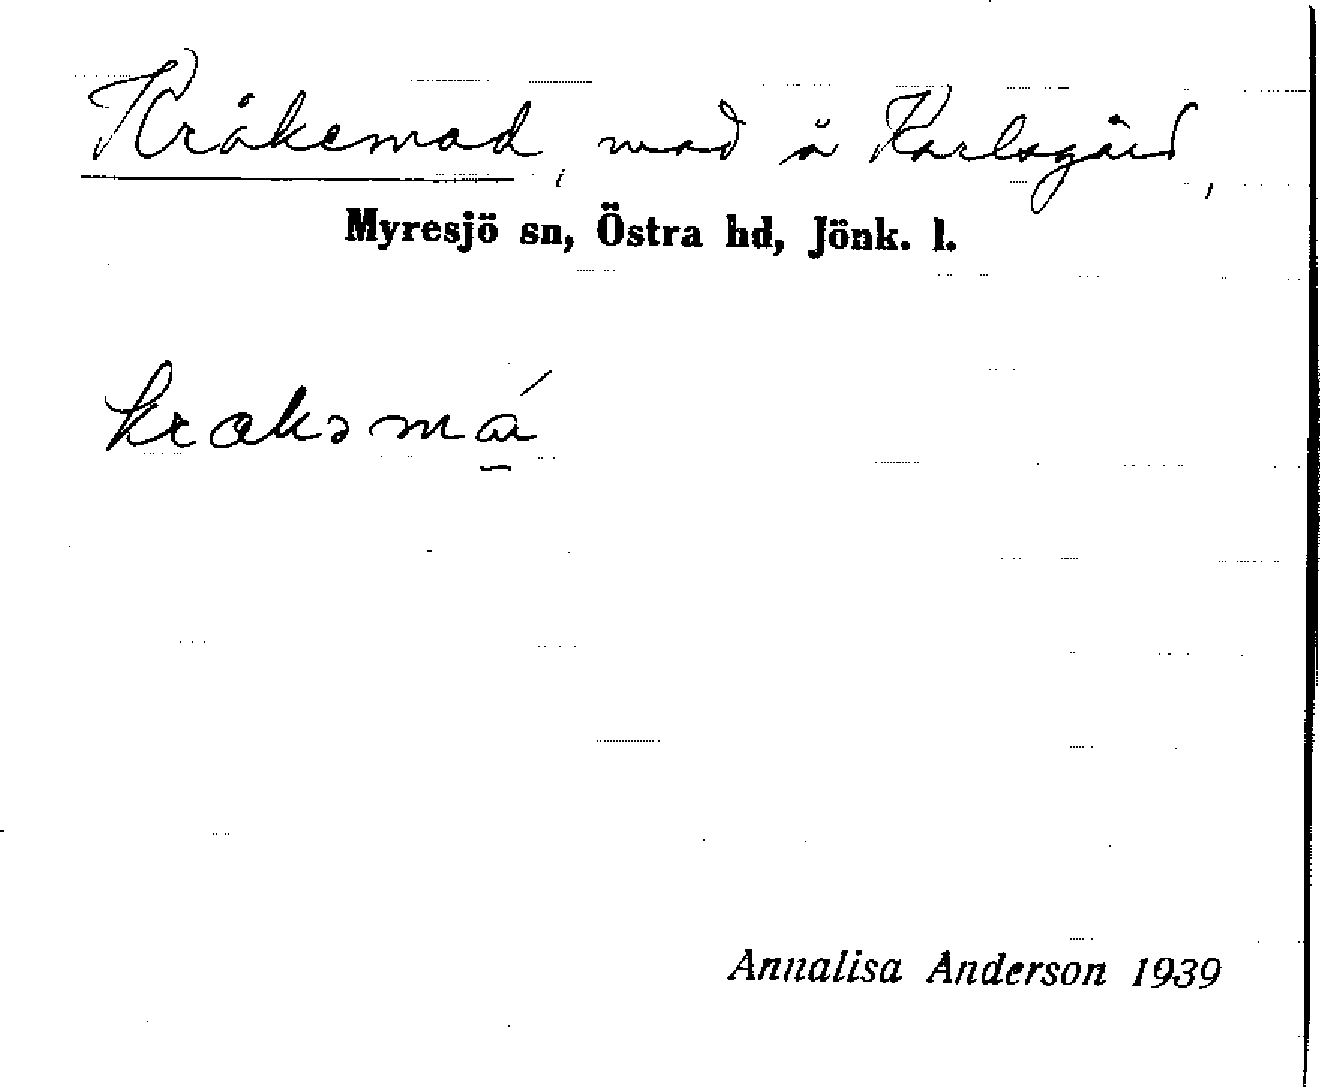 Kråkemad, mad å Karlsgård,
Myresjö sn, Östra hd, Jönk. l.
krakəmá̱
Annalisa Anderson 1939